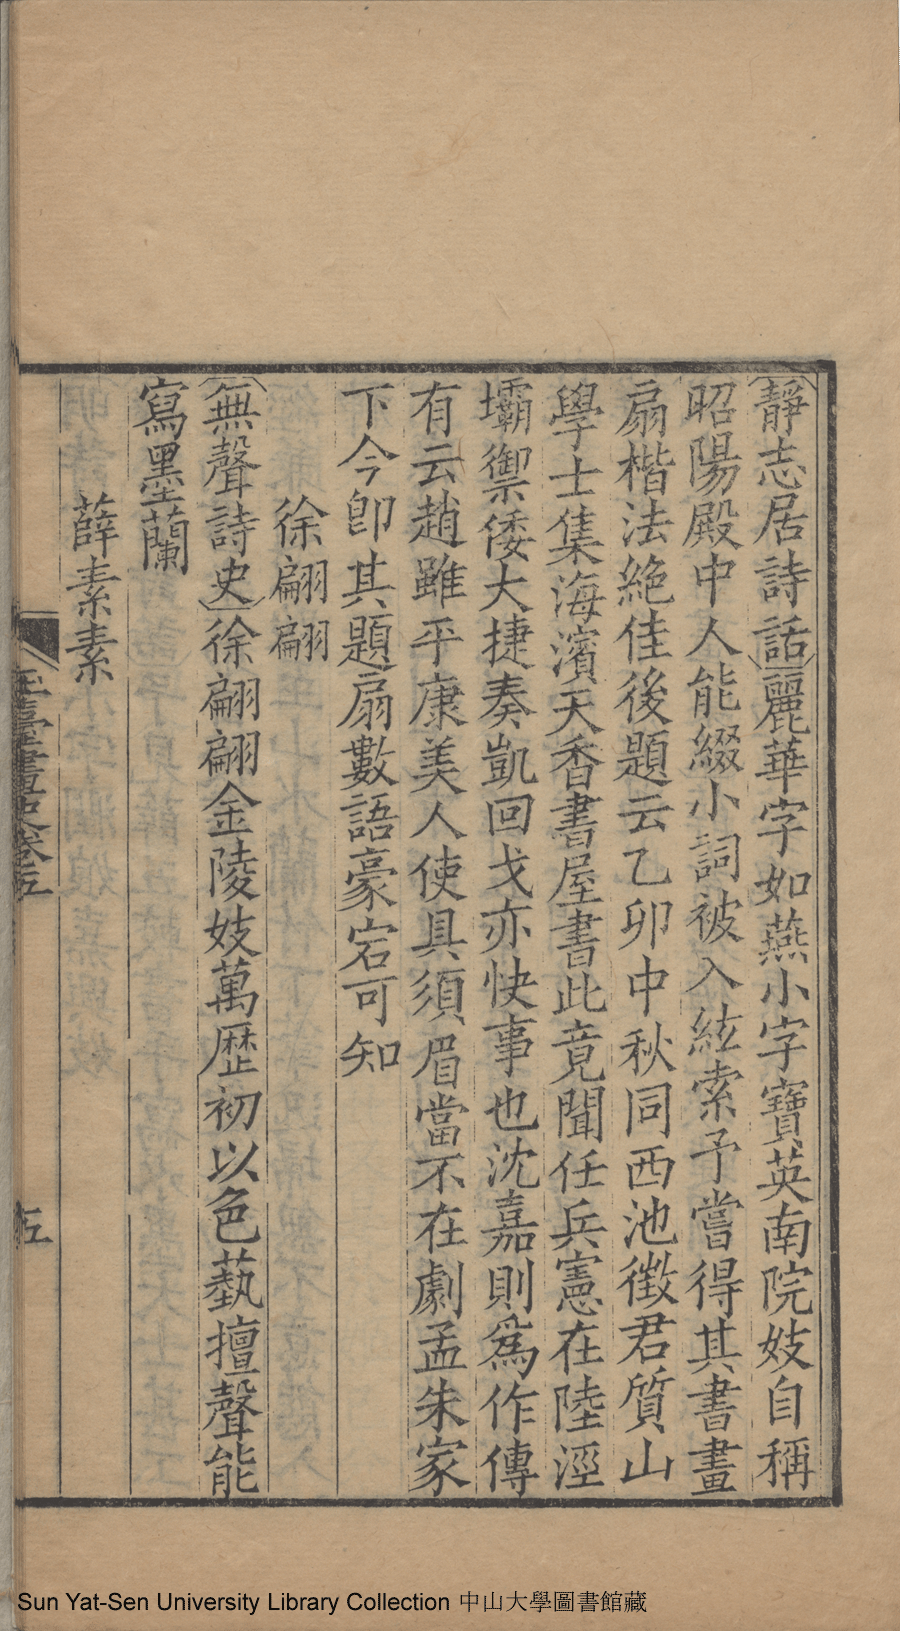 靜志居詩話麗華字如燕小字寶英南院妓自稱
昭陽殿中人能綴小詞被入絃索予嘗得其書畫
扇楷法絶佳後題云乙卯中秋同西池徵君質山
學士集海濱天香書屋書此竟聞任兵憲在陸涇
壩禦倭大捷奏凱回戈亦快事也沈嘉則爲作傳
有云趙雖平康美人使具須眉當不在劇孟朱家
下今卽其題扇數語豪宕可知
徐翩翩
無聲詩史徐翩翩金陵妓萬歷初以色藝擅聲能
寫墨蘭
薛素素
玉臺畫史卷五
五
Sun Yat-Sen University Library Collection 中山大學圖書館藏